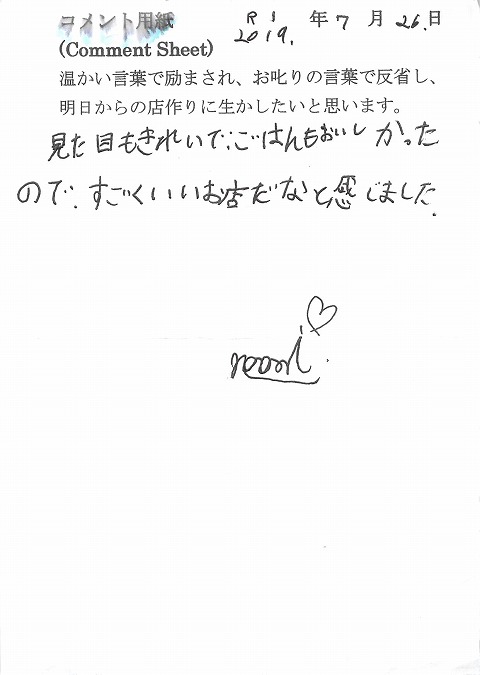 コメント用紙 R1 2019. 年 7 月 26. 日
(Comment Sheet)
温かい言葉で励まされ、お叱りの言葉で反省し、
明日からの店作りに生かしたいと思います。
見た目もきれいで、ごはんもおいしかった
ので、すごくいいお店だなと感じました.